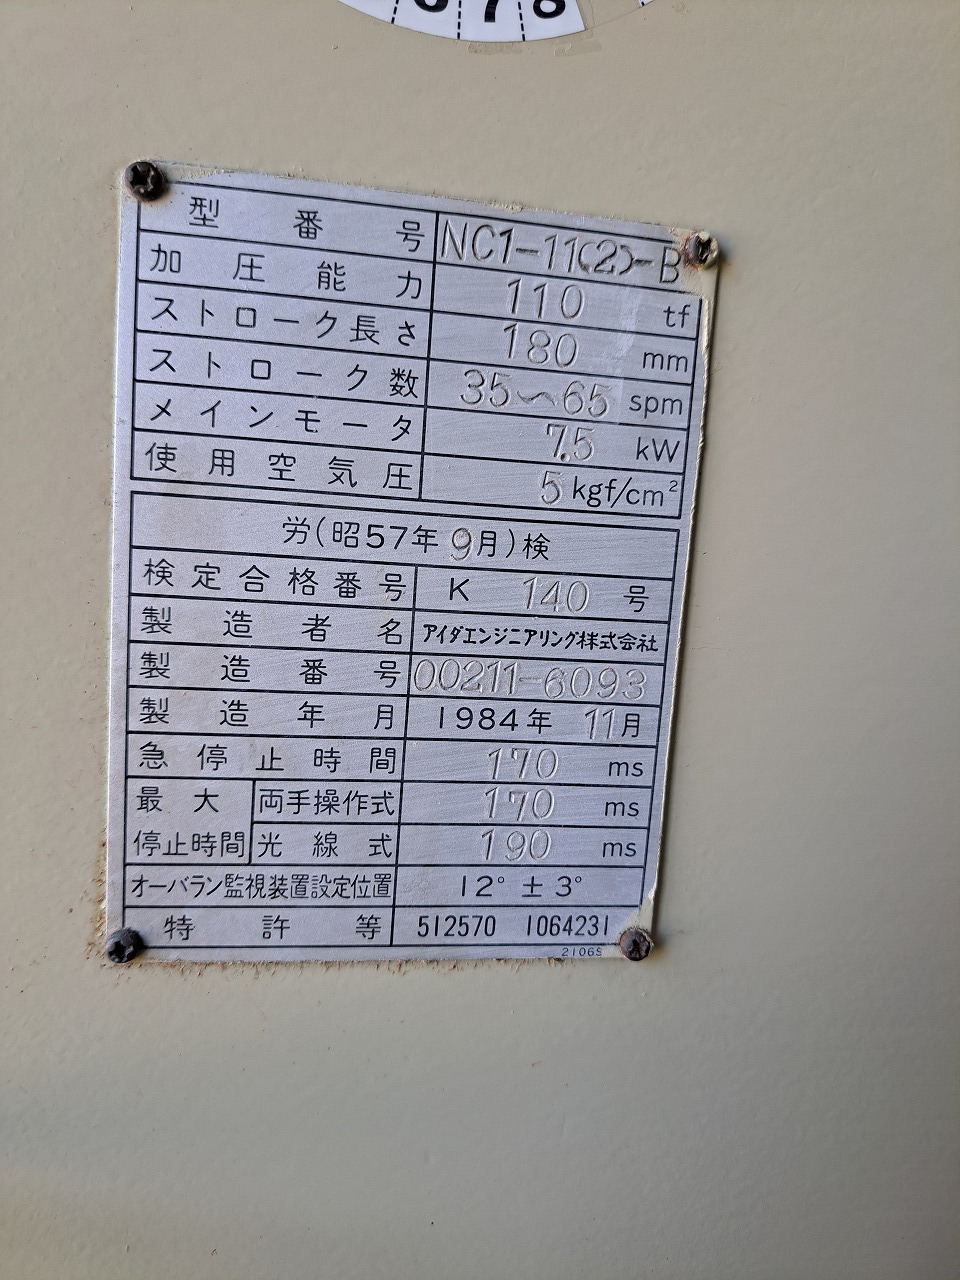 7 8
型番号 NC1-11(2)-B
加圧能力 110 tf
ストローク長さ 180 mm
ストローク数 35〜65 spm
メインモータ 7.5 kW
使用空気圧 5 kgf/cm²
労(昭57年9月)検
検定合格番号 K 140 号
製造者名 アイダエンジニアリング株式会社
製造番号 00211-6093
製造年月 1984年 11月
急停止時間 170 ms
最大停止時間 両手操作式 170 ms
光線式 190 ms
オーバラン監視装置設定位置 12° ± 3°
特許等 512570 1064231
2106S